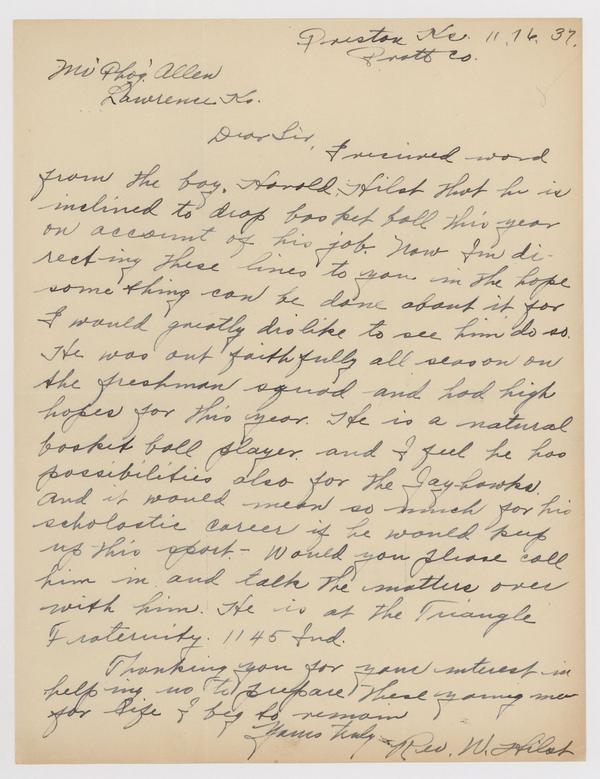 Preston Ks. 11.16.37.
Pratt Co.
Mr Phog Allen
Lawrence Ks.
Dear Sir,
I recieved word
from the boy, Harold Hilst that he is
inclined to drop basket ball this year
on account of his job. Now I'm di-
rect-ing these lines to you in the hope
some thing can be done about it for
I would greatly dislike to see him do so.
He was out faithfully all season on
the freshman squad and had high
hopes for this year. He is a natural
basket ball player. and I feel he has
possibilities also for the Jay-hawks.
And it would mean so much for his
scholastic career if he would keep
up this sport - Would you please call
him in and talk the matters over
with him. He is at the Triangle
Fraternity. 1145 Ind.
Thanking you for your interest in
helping us to prepare these young men
for life I beg to remain
Yours truly - Rev. W. Hilst